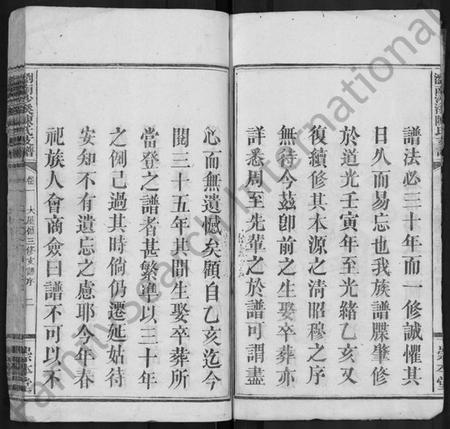 譜法必三十年而一修誠懼其
日久而易忘也我族譜牒肇修
於道光壬寅年至光緒乙亥又
復續修其本源之清昭穆之序
無待今茲卽前之生娶卒葬亦
詳悉周至先輩之於譜可謂盡
心而無遺憾矣顧自乙亥迄今
閱三十五年共間生娶卒葬所
當登之譜者甚繁準以三十年
之例已過其時倘仍遷延姑待
安知不有遺忘之慮耶今年春
祀族人會商僉曰譜不可以不
瀏南沙溪陳氏支譜
卷一
大屋仙三修支譜序
二
崇本堂
FamilySearch International